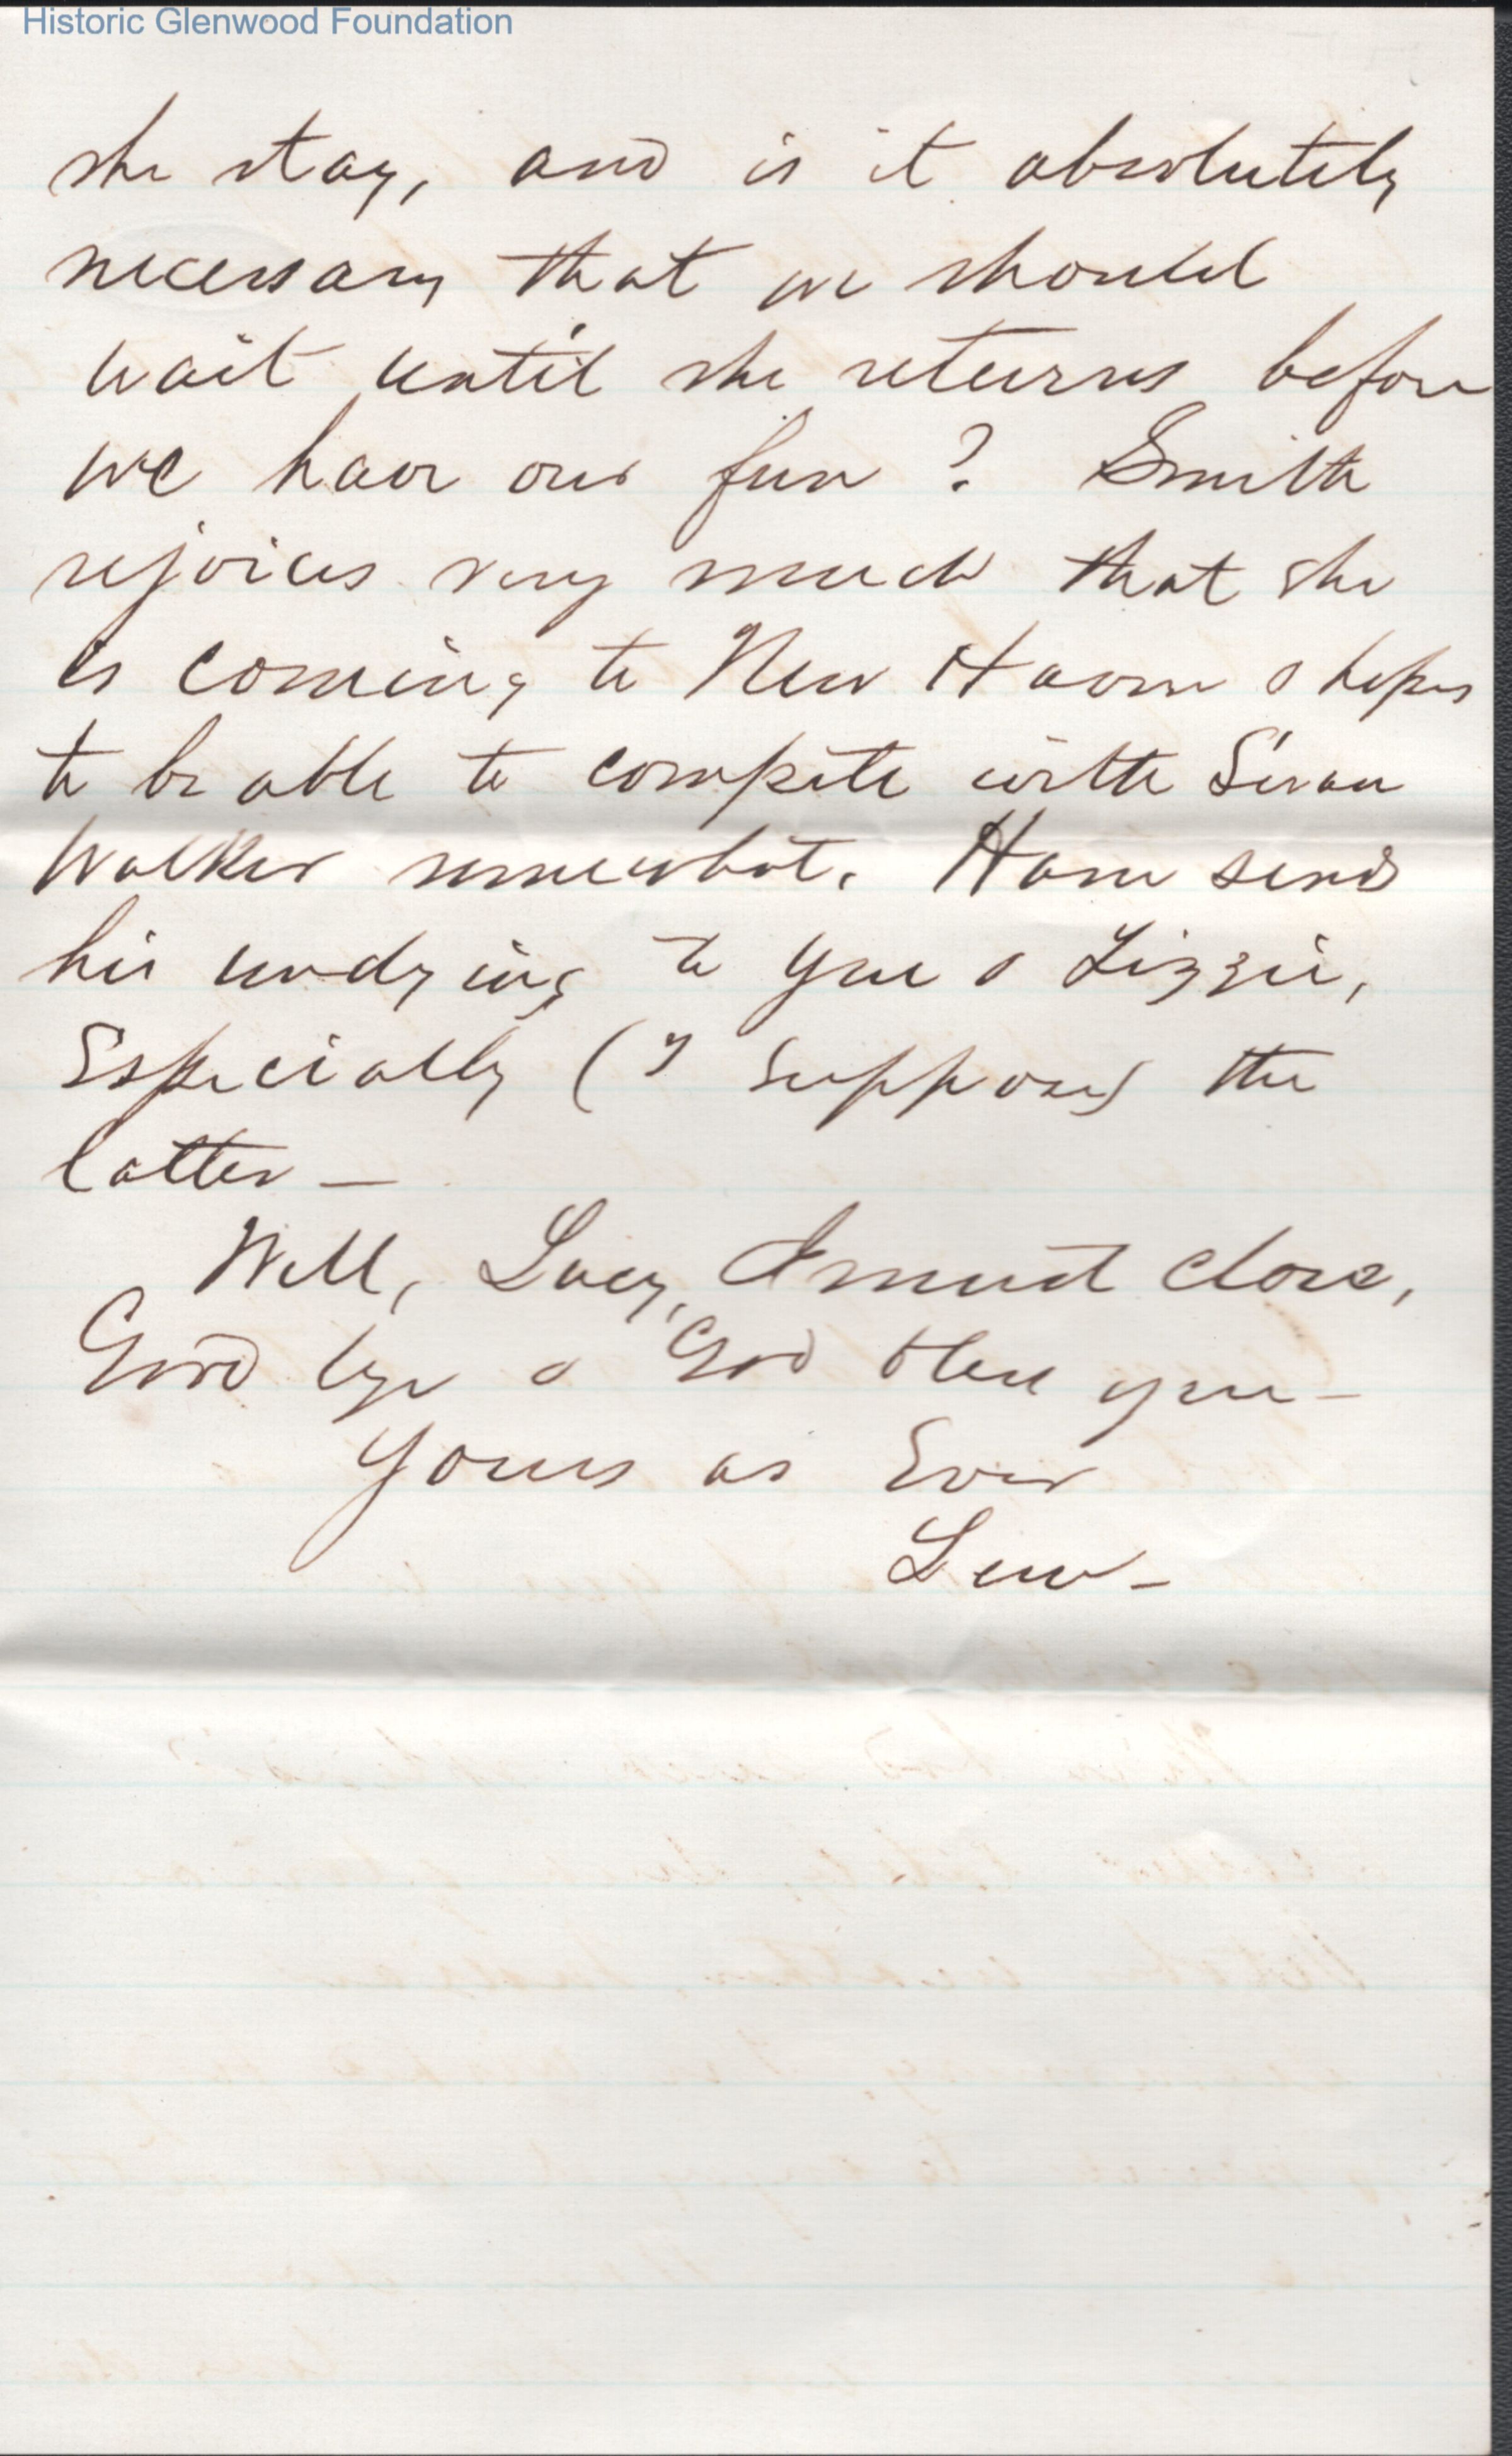 Historic Glenwood Foundation
she stay, and is it absolutely
necessary that we should
wait until she returns before
we have our fun ? Smith
rejoices very much that she
is coming to New Haven & hopes
to be able to compete with
Walker somewhat. Ham sends
his undying to you & Lizzie,
Especially (I suppose) the
latter —
Well, Lucy, I must close,
Good bye & God bless you —
Yours as Ever
Lew —